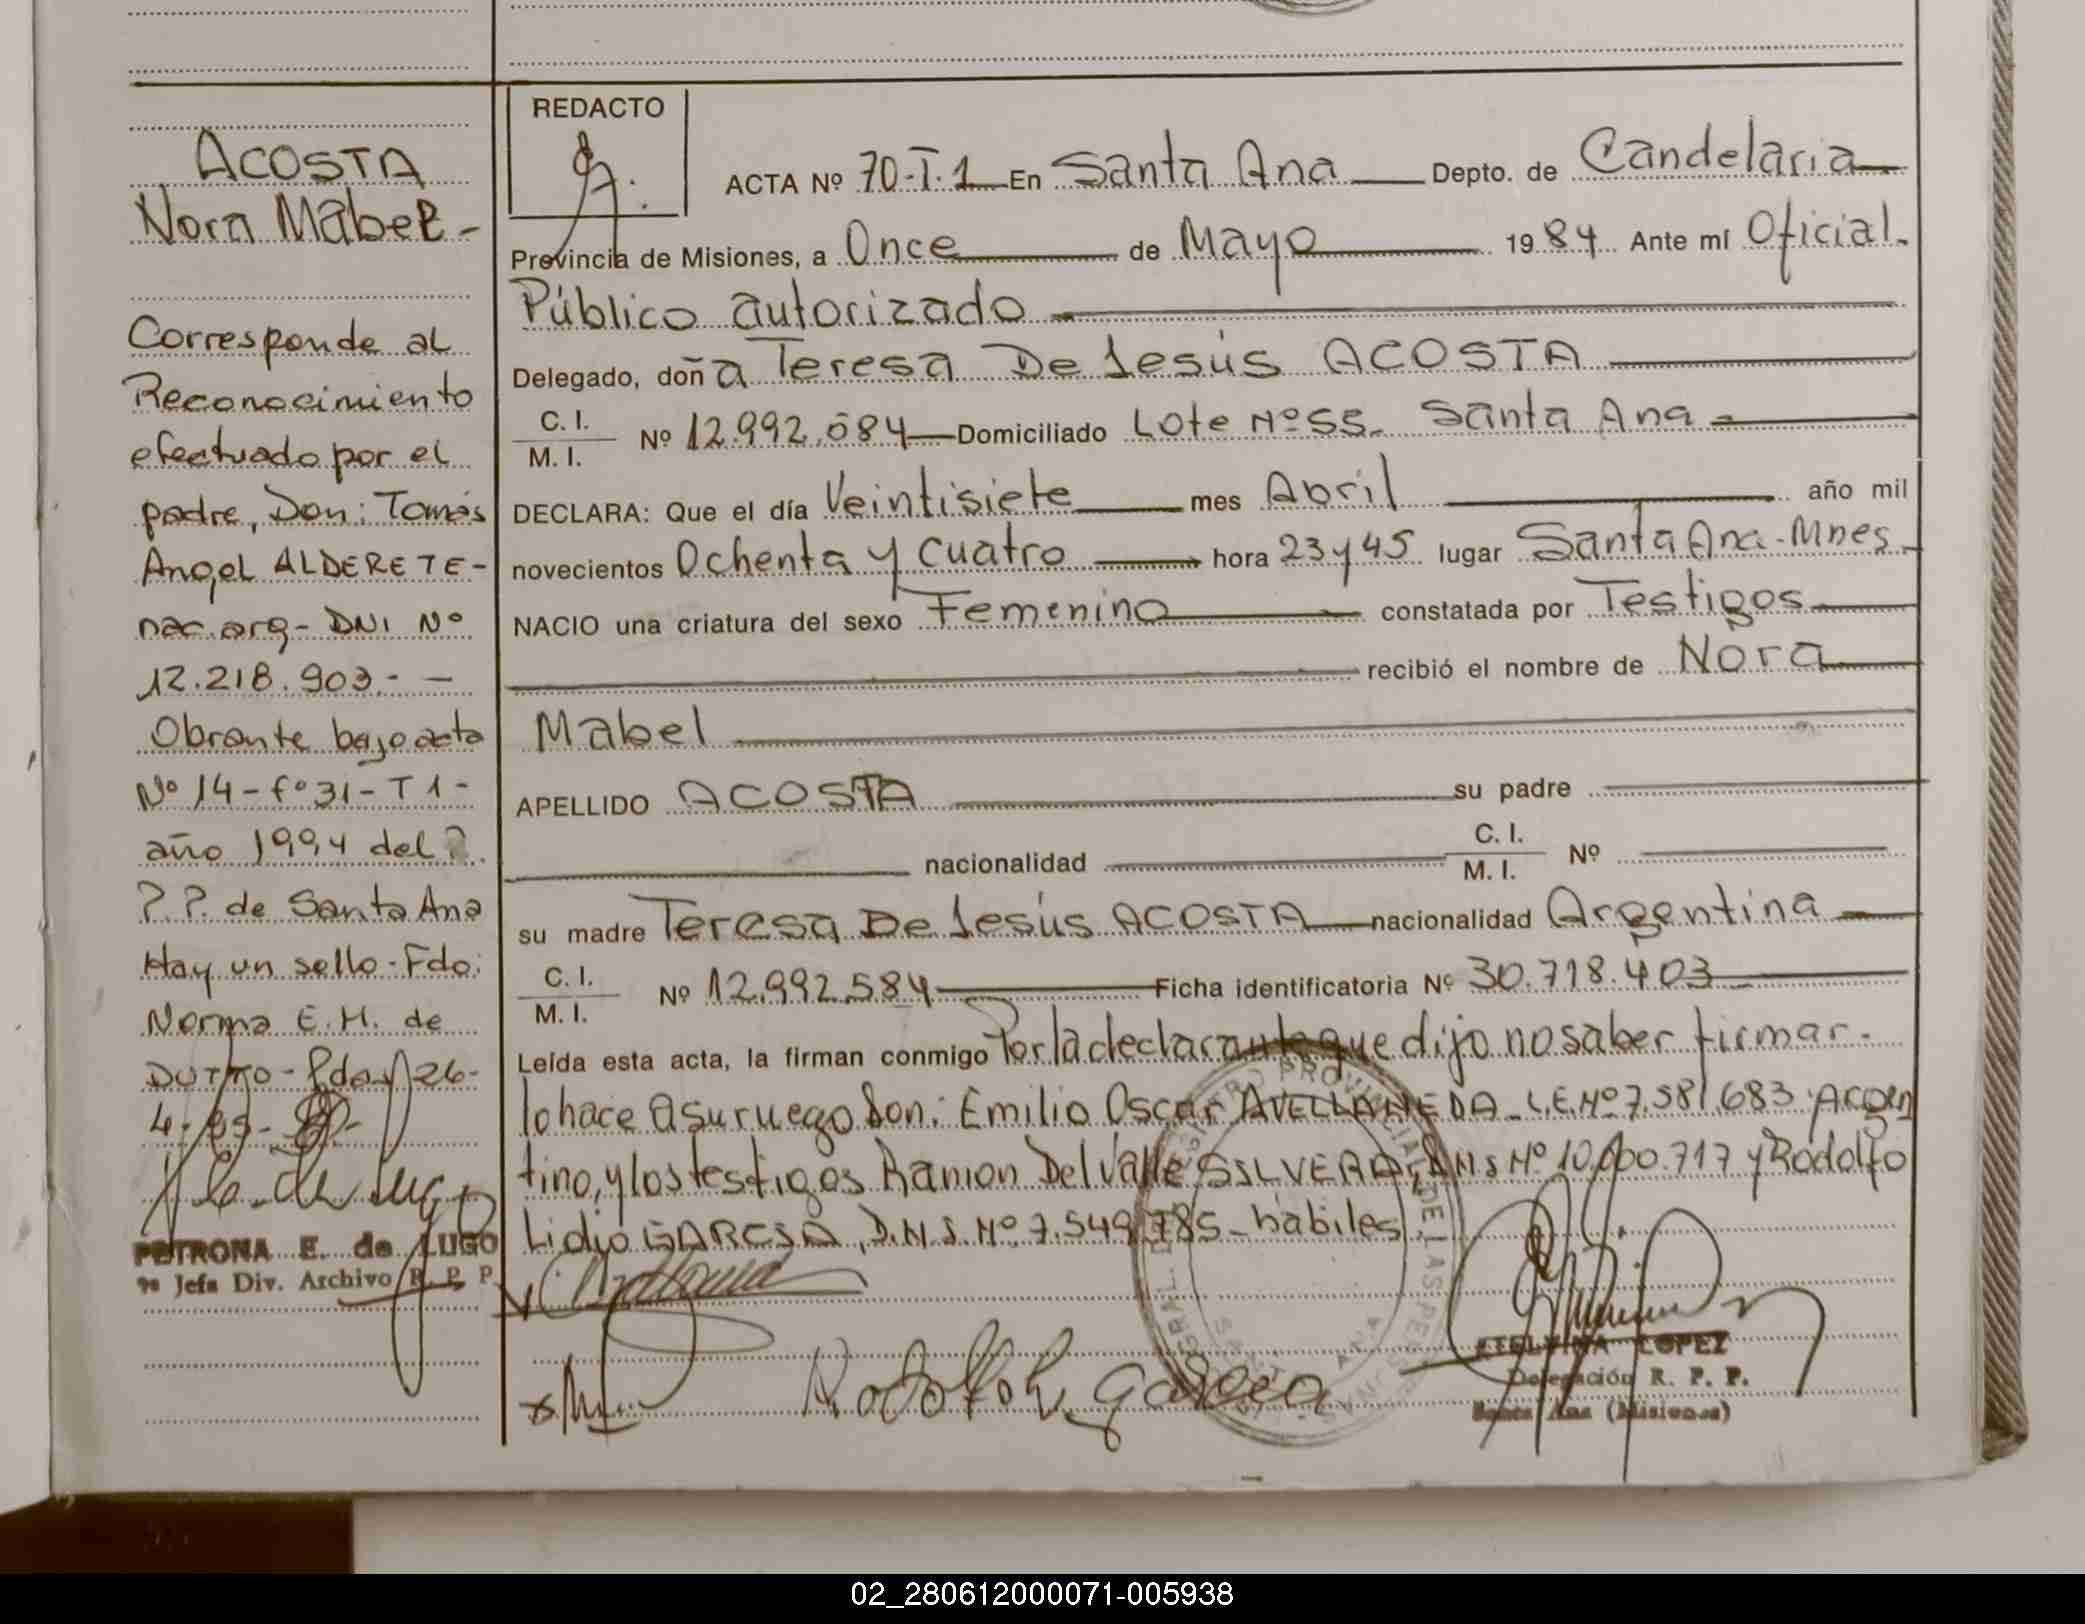 ACOSTA
Nora Mabel -
Corresponde al
Reconocimiento
efectuado por el
padre, Don: Tomás
Angel ALDERETE -
nac. arg - DNI Nº
12.218.903 - -
Obrante bajo acta
Nº 14 - fº 31 - T 1 -
año 1994 del
P.P. de Santa Ana
Hay un sello - Fdo:
Norma E. H. de
DUTTO - Pdas, 26 -
PETRONA E. de LUGO
Jefa Div. Archivo R. P. P.
REDACTO
ACTA Nº 70-T.1 En Santa Ana Depto. de Candelaria
Provincia de Misiones, a Once de Mayo 1984 Ante mí Oficial
Público autorizado
Delegado, doña Teresa De Jesús ACOSTA
C. I.
M. I.
Nº 12.992.584 Domiciliado Lote Nº 55 - Santa Ana -
DECLARA: Que el día Veintisiete mes Abril año mil
novecientos Ochenta y Cuatro hora 23 y 45 lugar Santa Ana - Mnes.
NACIO una criatura del sexo Femenino constatada por Testigos
recibió el nombre de Nora
Mabel
APELLIDO ACOSTA su padre
nacionalidad C. I. M. I. Nº
su madre Teresa De Jesús ACOSTA nacionalidad Argentina
C. I.
M. I.
Nº 12.992.584 Ficha identificatoria Nº 30.718.403
Leída esta acta, la firman conmigo Por la declarante que dijo no saber firmar.
lo hace a su ruego Don: Emilio Oscar AVELLANEDA - L.E. Nº 7.581.683 Argen
tino, y los testigos Ramon Del Valle SILVERA, DNI Nº 10.000.717 y Rodolfo
Lidio GARCIA, D.N.I. Nº 7.549.785 - habiles
Rodolfo L García
ETELVINA LOPEZ
Delegación R. P. P.
Santa Ana (Misiones)
02_280612000071-005938